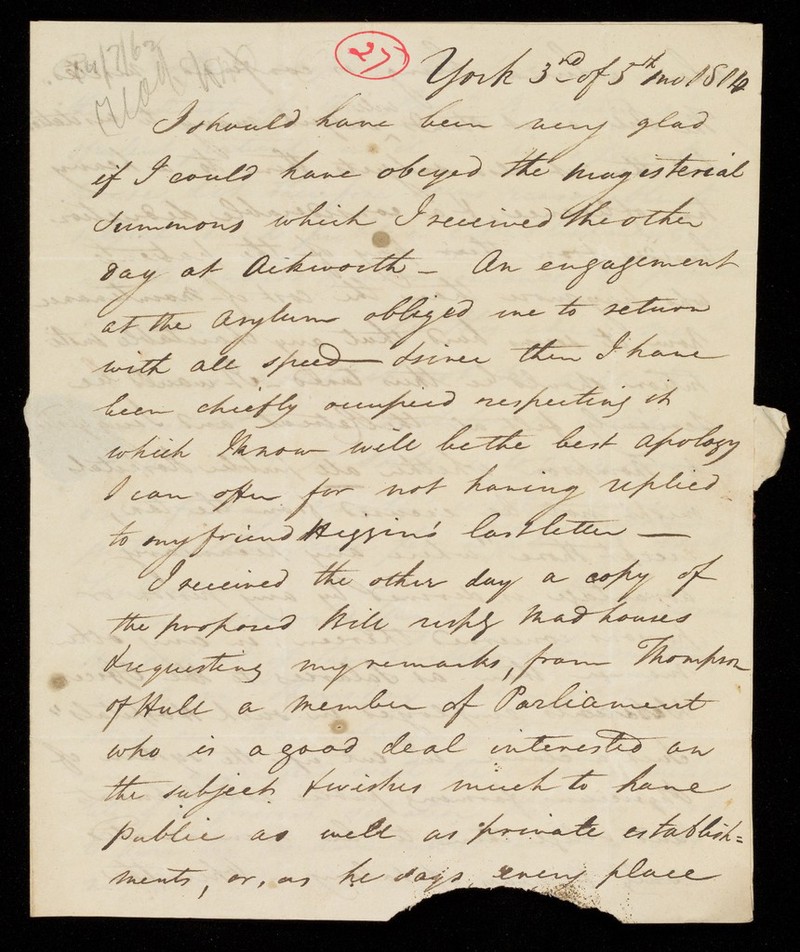 27
York 3rd of 5th mo 1814
I should have been very glad
if I could have obeyed the magisterial
summons which I received the other
day at Ackworth - An engagement
at the Asylum obliged me to return
with all speed - & since then I have
been chiefly occupied respecting it
which I know will be the best apology
I can offer for not having replied
to my friend Higgins's last letter -
I received the other day a copy of
the proposed Bill respg Madhouses
& requesting my remarks, from Thompson
of Hull a member of Parliament
who is a good deal interested on
the subject & wishes much to have
public as well as private establish=
ments, or, as he says every place